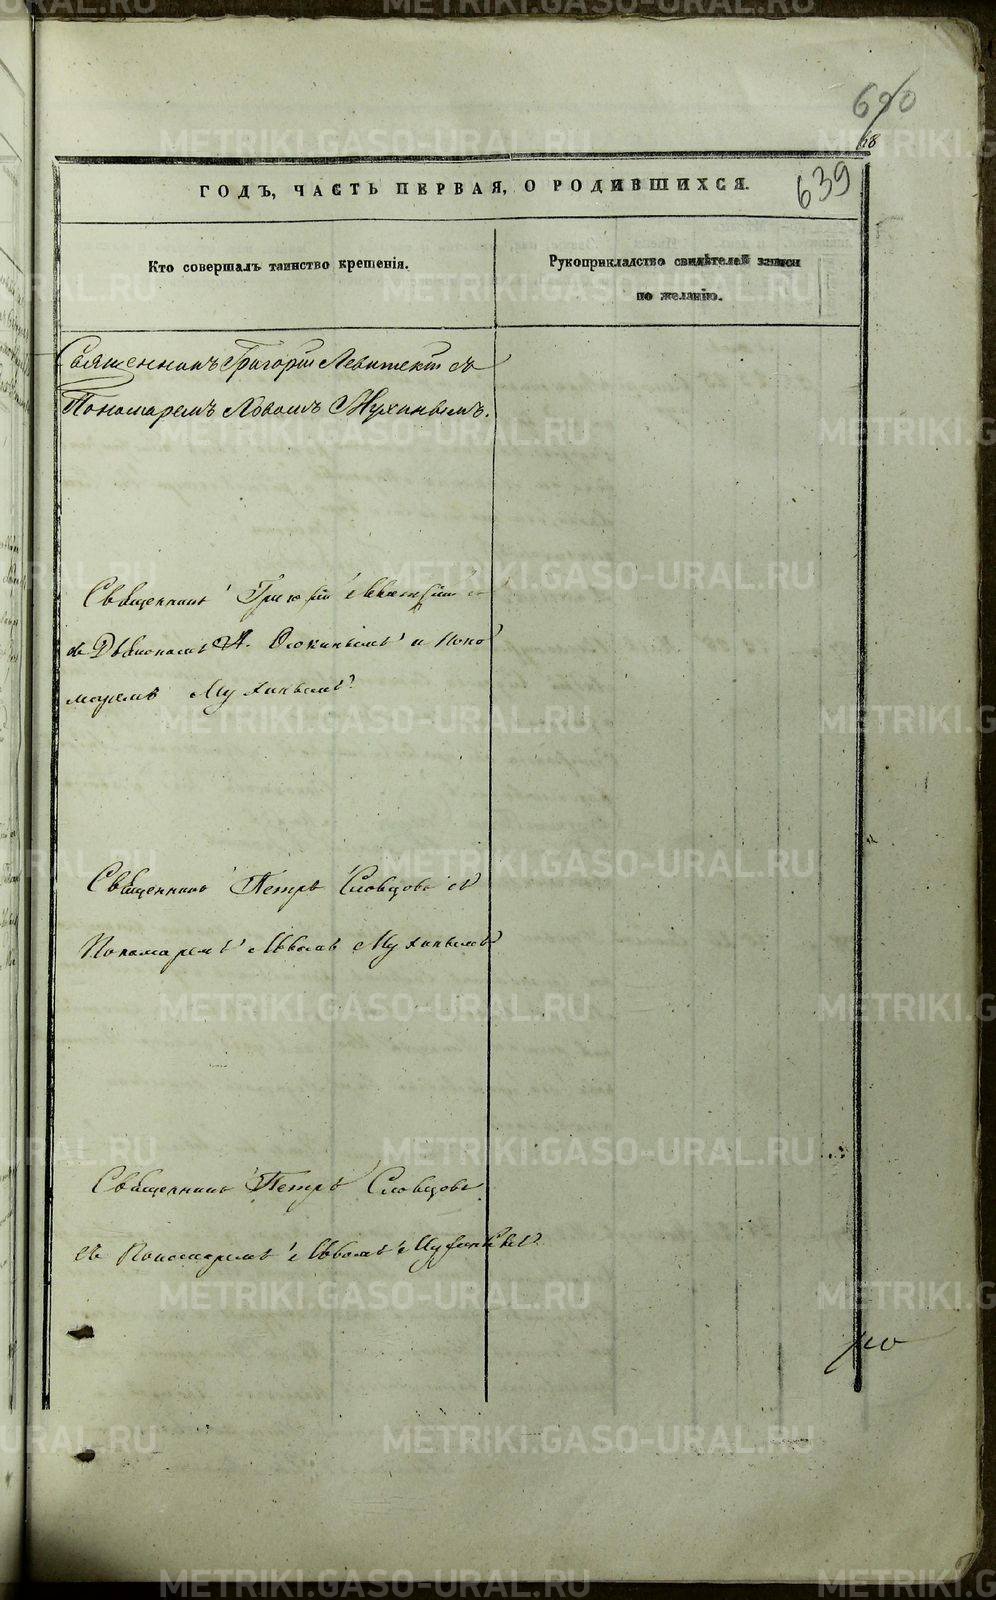 690
18
639
ГОДЪ, ЧАСТЬ ПЕРВАЯ, О РОДИВШИХСЯ.
Кто совершалъ таинство крещенія.
Рукоприкладство свидѣтелей записи
по желанію.
Священникъ Григорій Левитскій съ
Пономаремъ Львомъ Мухинымъ.
Священникъ Григорій Левитскій
съ Дьякономъ А. и Поно
маремъ Мухинымъ
Священникъ Петръ Словцовъ съ
Пономаремъ Львомъ Мухинымъ
Священникъ Петръ Словцовъ
съ Пономаремъ Львомъ Мухинымъ
METRIKI.GASO-URAL.RU